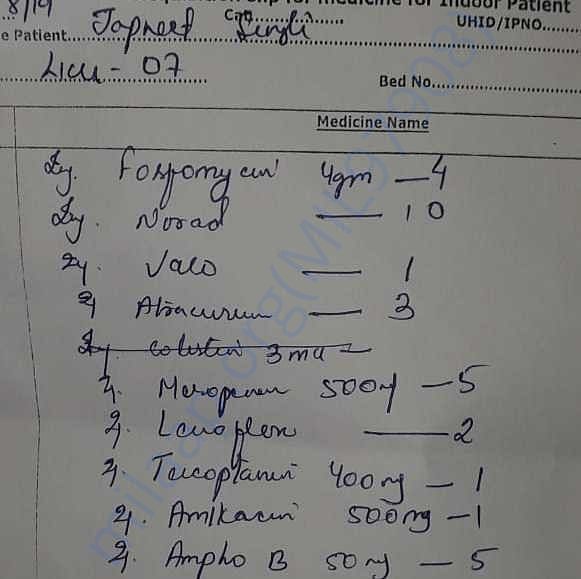 8/19
Requisition Slip for Medicine for Indoor Patient
e Patient.... Japneet Singh Cat............ UHID/IPNO.
Licu - 07 Bed No.
Medicine Name
Inj. Fosfomycin 4gm — 4
Inj. Norad — 10
Inj. Vaso — 1
Inj. Atracurium — 3
Inj. Colistin 3mu —
Inj. Meropenem 500mg — 5
Inj. Levoflox — 2
Inj. Teicoplanin 400mg — 1
Inj. Amikacin 500mg — 1
Inj. Ampho B 50mg — 5
milaap.org(MIL97908)